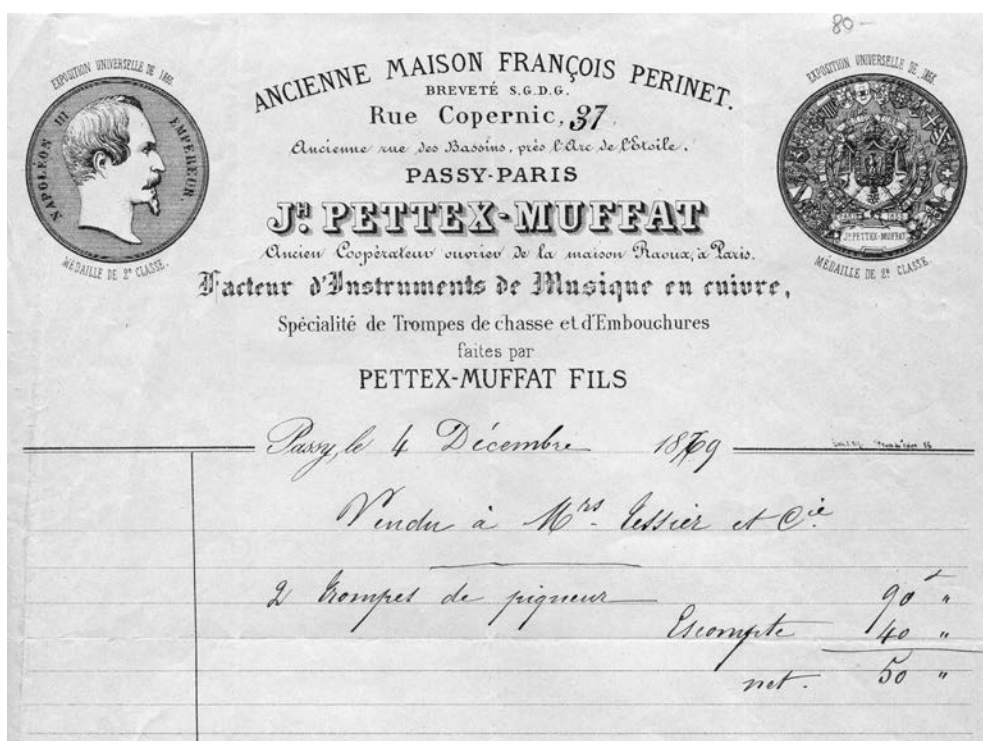 80 –
EXPOSITION UNIVERSELLE DE 1855.
NAPOLEON III EMPEREUR.
MÉDAILLE DE 2e CLASSE.
ANCIENNE MAISON FRANÇOIS PERINET.
BREVETÉ S.G.D.G.
Rue Copernic, 37.
Ancienne rue des Bassins, près l'Arc de l'Etoile.
PASSY-PARIS
JH PETTEX-MUFFAT
Ancien Coopérateur ouvrier de la maison Raoux, à Paris.
Facteur d'Instruments de Musique en cuivre,
Spécialité de Trompes de chasse et d'Embouchures
faites par
PETTEX-MUFFAT FILS
EXPOSITION UNIVERSELLE DE 1855.
PARIS 1855
JH PETTEX-MUFFAT
MÉDAILLE DE 2e CLASSE.
Passy, le 4 Décembre 1879
Vendu à Mrs. Tessier et Cie.
2 trompes de piqueur 90 "
Escompte 40 "
net. 50 "